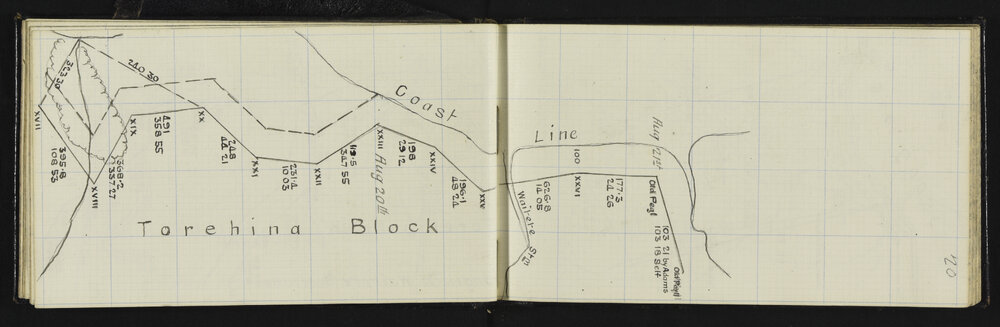 Coast
Line
Aug 21st
240 30
323 30
XVII
XIX
491
358 55
XX
248
44 21
XXI
231.4
10 03
XXII
119.5
347 55
XXIII
Aug 20th
198
29 12
XXIV
196.1
48 24
XXV
626.8
14 05
100
XXVI
177.3
24 26
Old Peg
395.8
108 53
XVIII
368.2
337 27
Torehina Block
Wairere Stm
103 21 by Adams
103 18 Self
Old Peg
20